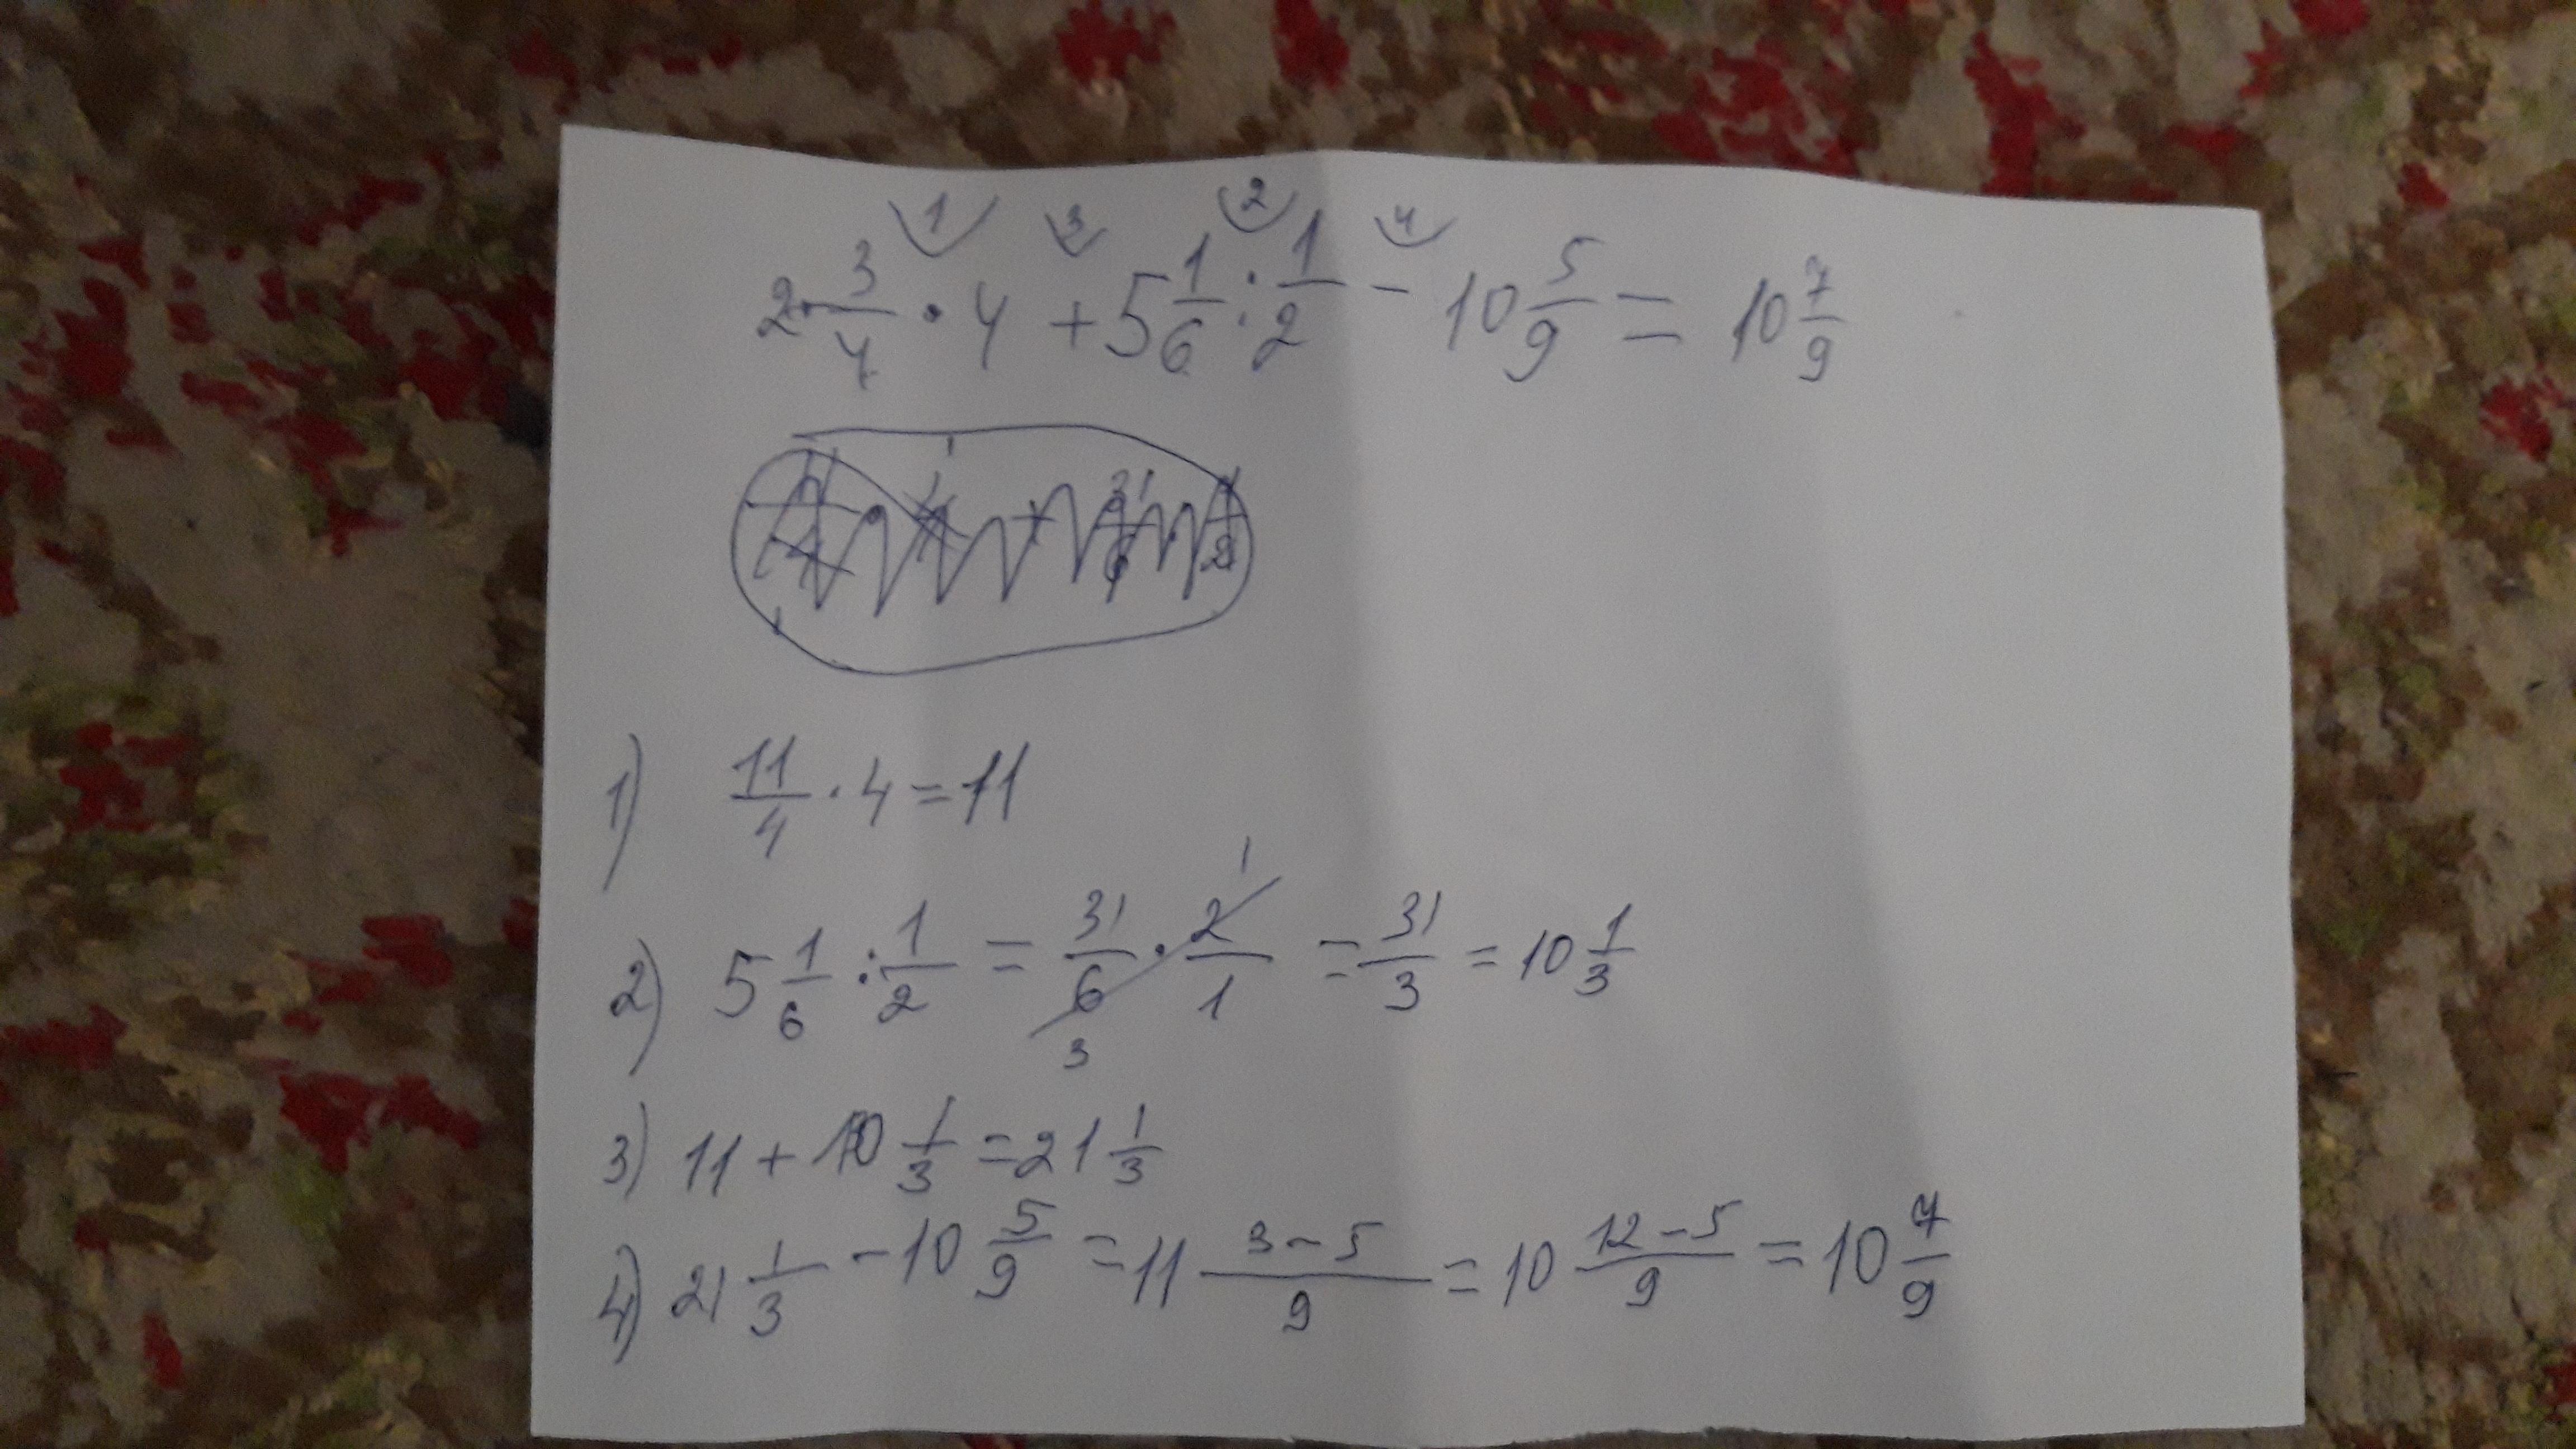 1 3 2 4
2 3/4 · 4 + 5 1/6 : 1/2 - 10 5/9 = 10 7/9
1) 11/4 · 4 = 11
2) 5 1/6 : 1/2 = 31/6 · 2/1 = 31/3 = 10 1/3
3) 11 + 10 1/3 = 21 1/3
4) 21 1/3 - 10 5/9 = 11 3-5/9 = 10 12-5/9 = 10 7/9